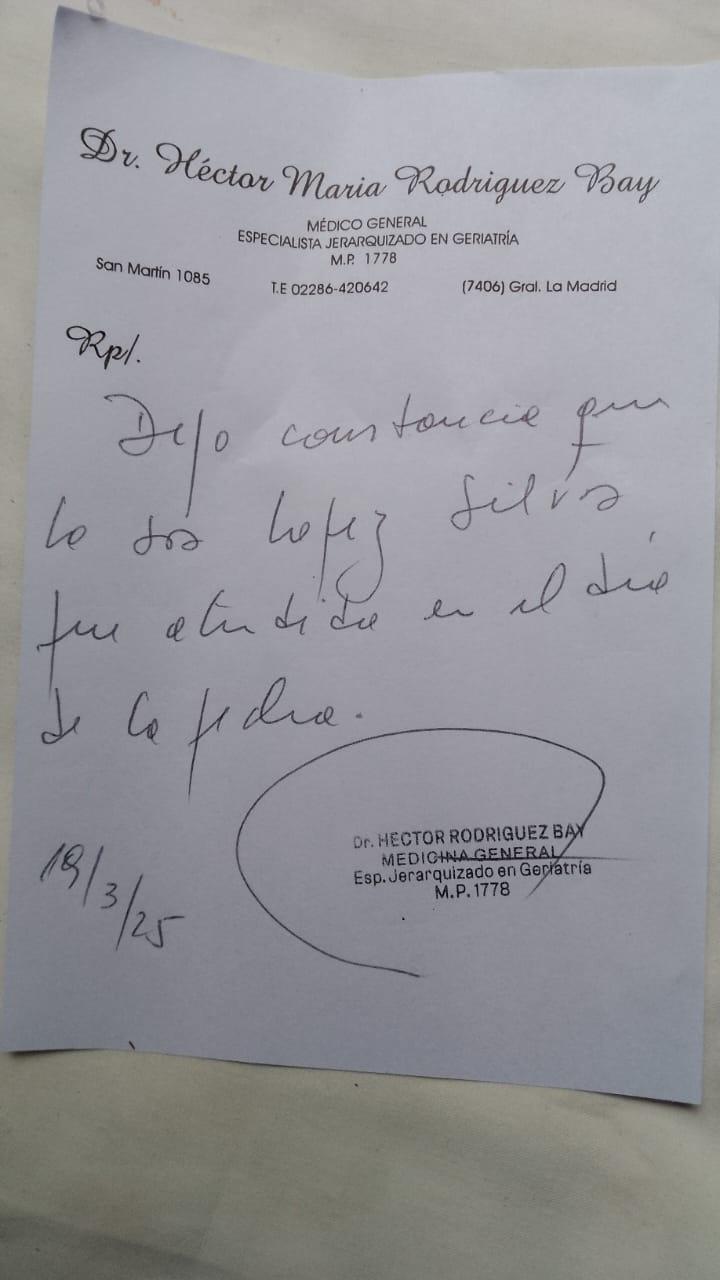 Dr. Héctor Maria Rodriguez Bay
MÉDICO GENERAL
ESPECIALISTA JERARQUIZADO EN GERIATRÍA
M.P. 1778
San Martín 1085 T.E 02286-420642 (7406) Gral. La Madrid
Rp/.
Dejo constancia que
la Sra Lopez Silvia
fue atendida en el día
de la fecha.
19/3/25
Dr. HECTOR RODRIGUEZ BAY
MEDICINA GENERAL
Esp. Jerarquizado en Geriatría
M.P. 1778